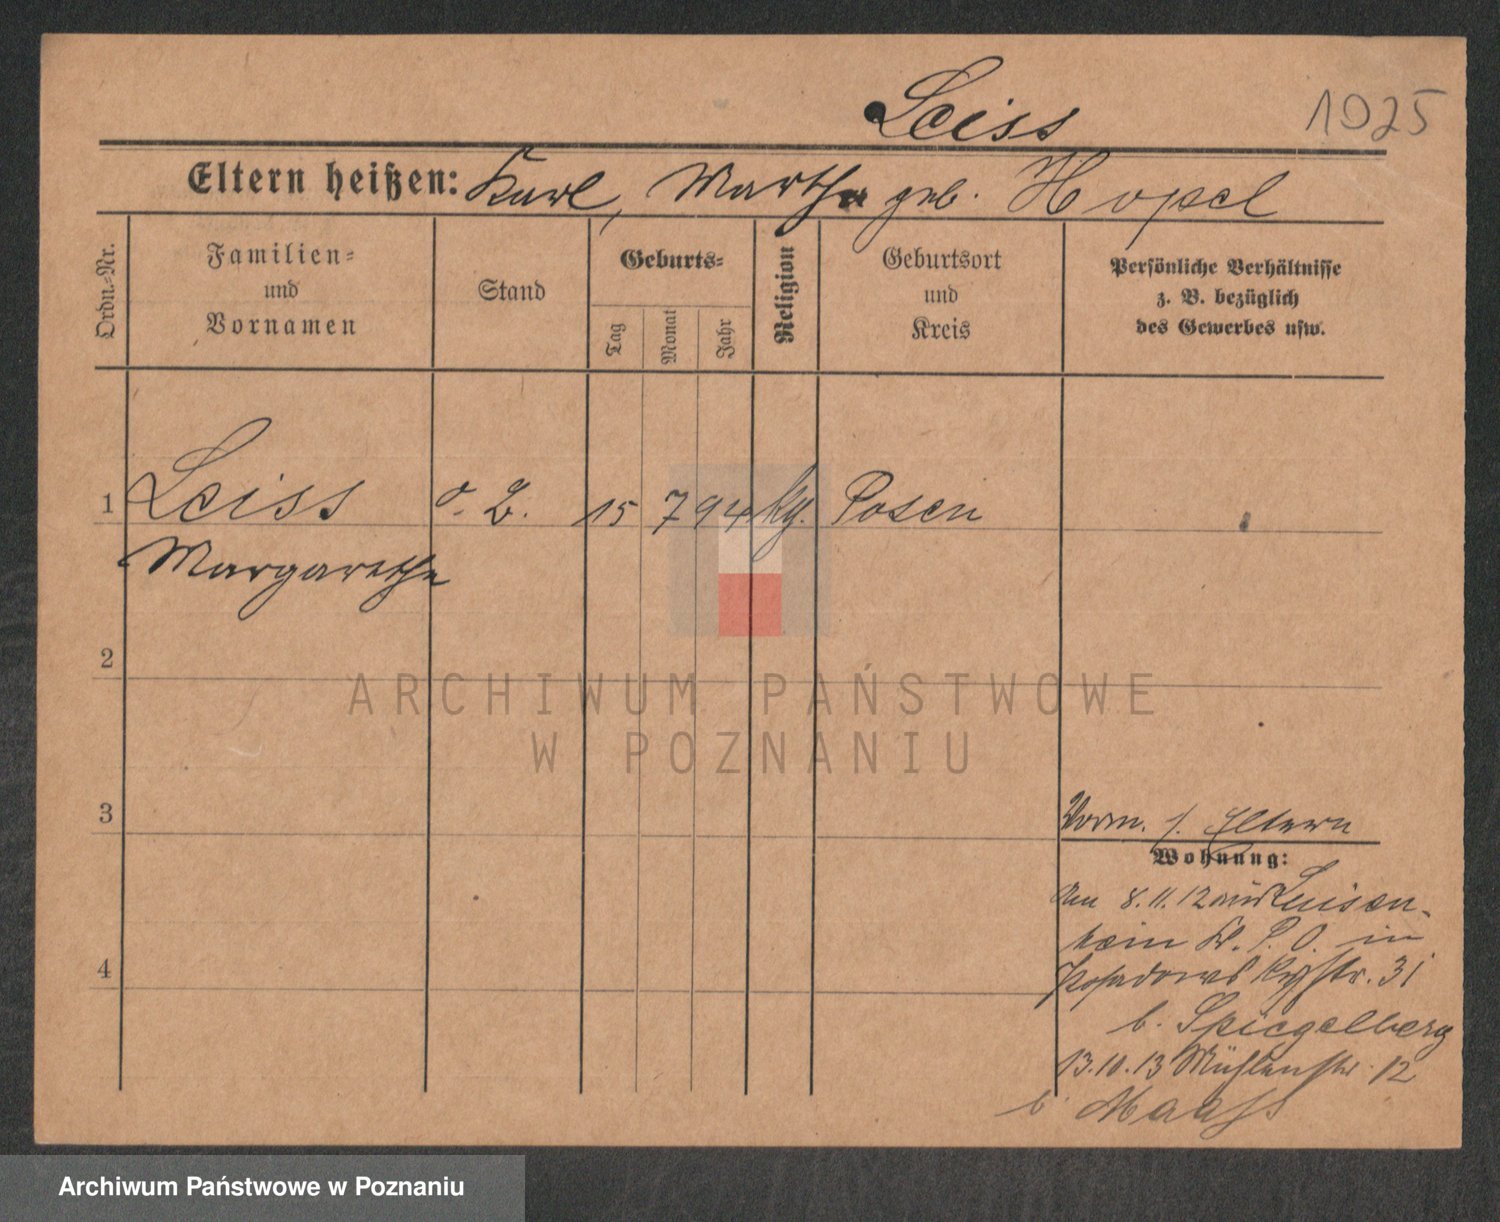 Leiss
1925
Eltern heißen: Karl, Martha geb. Hopel
Ordn.-Nr.
Familien-
und
Vornamen
Stand
Geburts-
Tag
Monat
Jahr
Religion
Geburtsort
und
Kreis
Persönliche Verhältnisse
z. B. bezüglich
des Gewerbes usw.
1 Leiss o. B. 15 7 94 kg. Posen
Margarethe
2
3
Vorm. s. Eltern
Wohnung:
Am 8.11.12 aus Luisen-
hain Kr. P. O. in
Posadowskystr. 31
b. Spiegelberg
13.10.13 Mühlenstr. 12
b. Maass
4
ARCHIWUM PAŃSTWOWE
W POZNANIU
Archiwum Państwowe w Poznaniu